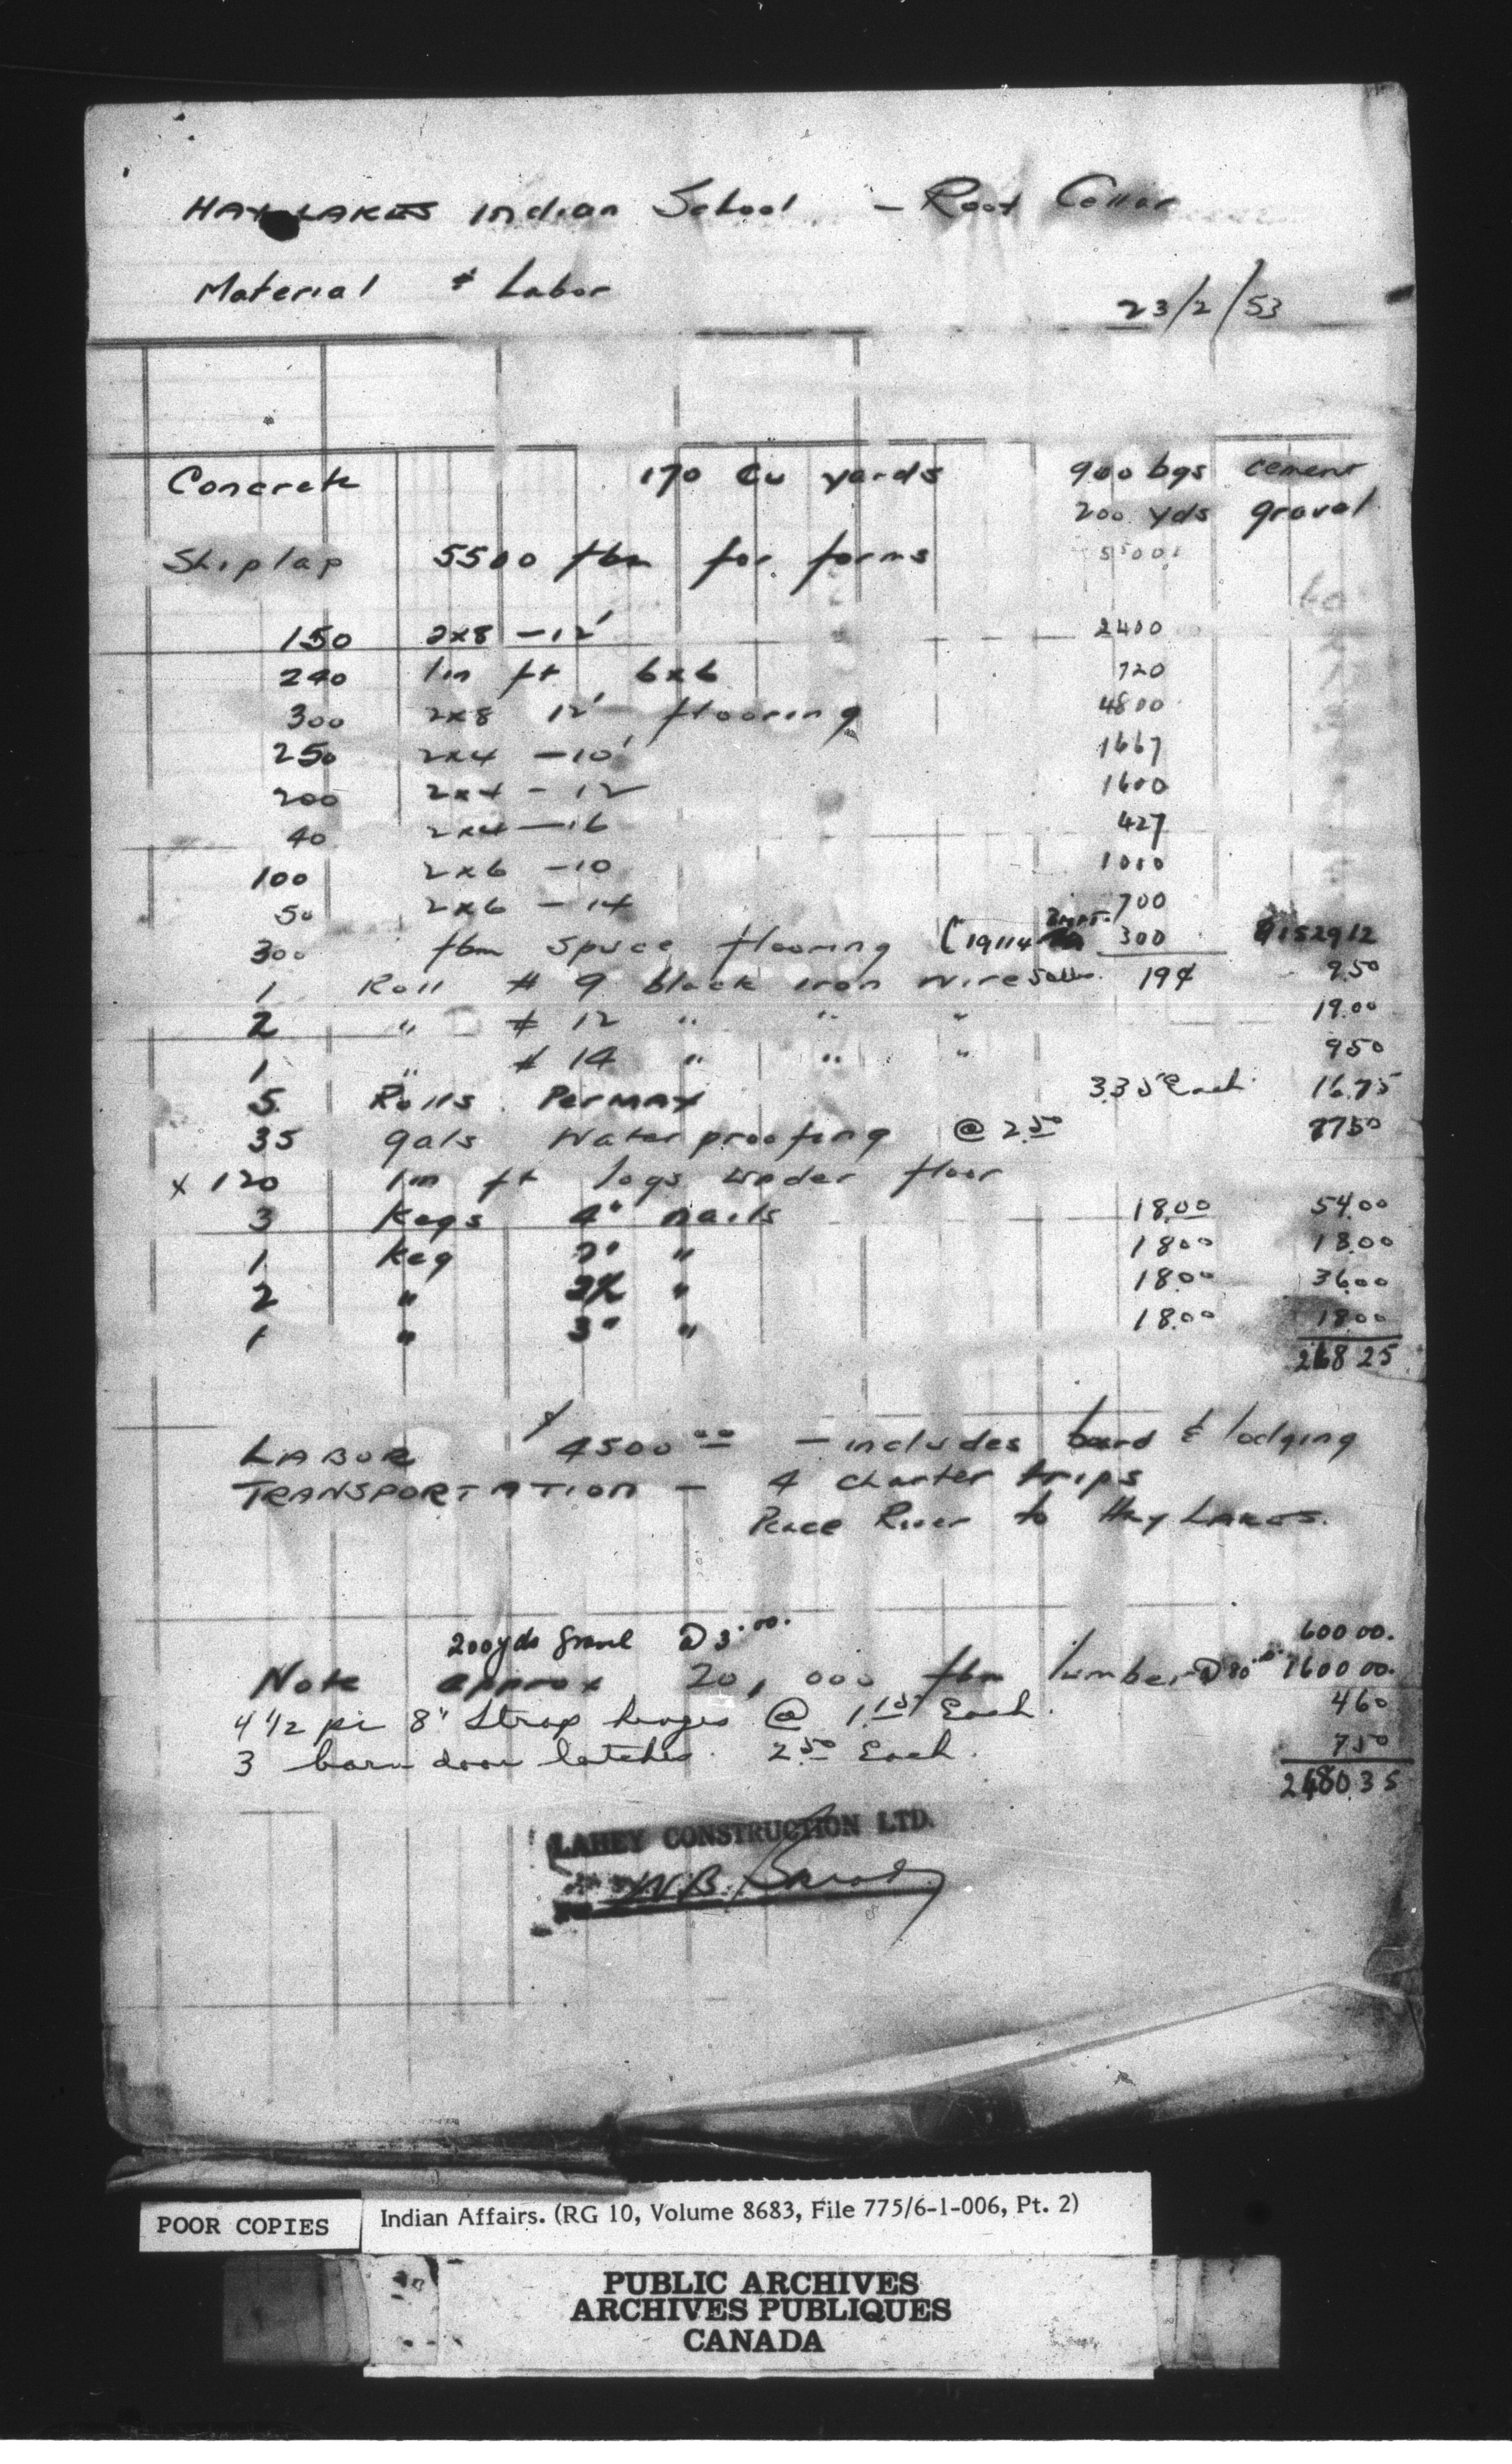 HAY LAKES Indian School - Root Cellar
Material & Labor
23/2/53
Concrete 170 Cu yards 900 bgs cement
200 yds gravel
Shiplap 5500 fbm for forms 5500
150 2x8 - 12' 2400
240 lin ft 6x6 720
300 2x8 12' flooring 4800
250 2x4 - 10' 1667
200 2x4 - 12 1600
40 2x4 - 16 427
100 2x6 - 10 1000
50 2x6 - 14 700
300 fbm spuce flooring (19114 300 $152912
1 Roll # 9 black iron wire 19¢ 9.50
2 " # 12 " " " 19.00
1 " # 14 " " " 950
5 Rolls Permax 3.35 Each 16.75
35 gals Waterproofing @ 2.50 8750
x 120 lin ft logs under floor
3 Kegs 4" nails 18.00 54.00
1 Keg " 1800 18.00
2 " 2½ " 18.00 36.00
1 " 3" " 18.00 18.00
268 25
LABOR $4500 00 - includes board & lodging
TRANSPORTATION - 4 charter trips
Peace River to Hay Lakes.
200 yds gravel @ 3.00. 600 00.
Note approx 20,000 fbm lumber @ 80 1600 00.
4 1/2 pr 8" Strap hinges @ 1.15 Each. 460
3 barn door latches. 2.50 Each. 750
2480.35
LAHEY CONSTRUCTION LTD.
W.B.
POOR COPIES
Indian Affairs. (RG 10, Volume 8683, File 775/6-1-006, Pt. 2)
PUBLIC ARCHIVES
ARCHIVES PUBLIQUES
CANADA